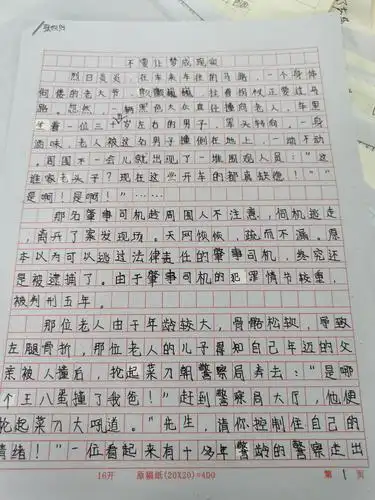 不要让梦成现实
烈日炎炎,在车来车往的马路,一个身体
佝偻的老大爷,颤颤巍巍,拄着拐杖正要过马
路。忽然,一辆黑色大众直往撞向老人,车里
坐着一位三十岁左右的男子,
酒味,老人被这名男子撞倒在地上,一动不动
。周围不一会儿就出现了一堆围观人员:“这
谁家老头子?现在这些开车的都真缺德!”“
是啊!是啊!”……
那名肇事司机趁周围人不注意,伺机逃走
,离开了案发现场。天网恢恢,疏而不漏。原
本以为可以逃过法律责任的肇事司机,终究还
是被逮捕了。由于肇事司机的犯罪情节较重,
被判刑五年。
那位老人由于年龄较大,骨骼松软,导致
左腿骨折,那位老人的儿子得知自己年迈的父
亲被人撞后,抡起菜刀朝警察局奔去:“是哪
个王八蛋撞了我爸!”赶到警察局大厅,他便
抡起菜刀大吼道。“先生,请你控制住自己的
情绪!”一位看起来有十多年警龄的警察走出
16开 原稿纸(20X20)=400 第 1 页